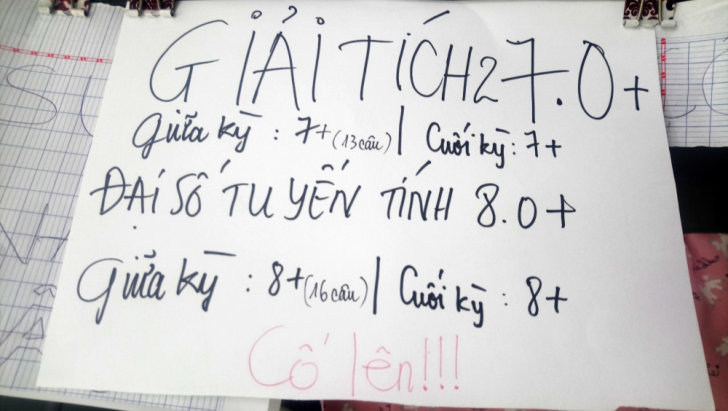 GIẢI TÍCH 2 7.0+
Giữa kỳ : 7+ (13 câu) | Cuối kỳ : 7+
ĐẠI SỐ TUYẾN TÍNH 8.0+
Giữa kỳ : 8+ (16 câu) | Cuối kỳ : 8+
Cố lên!!!